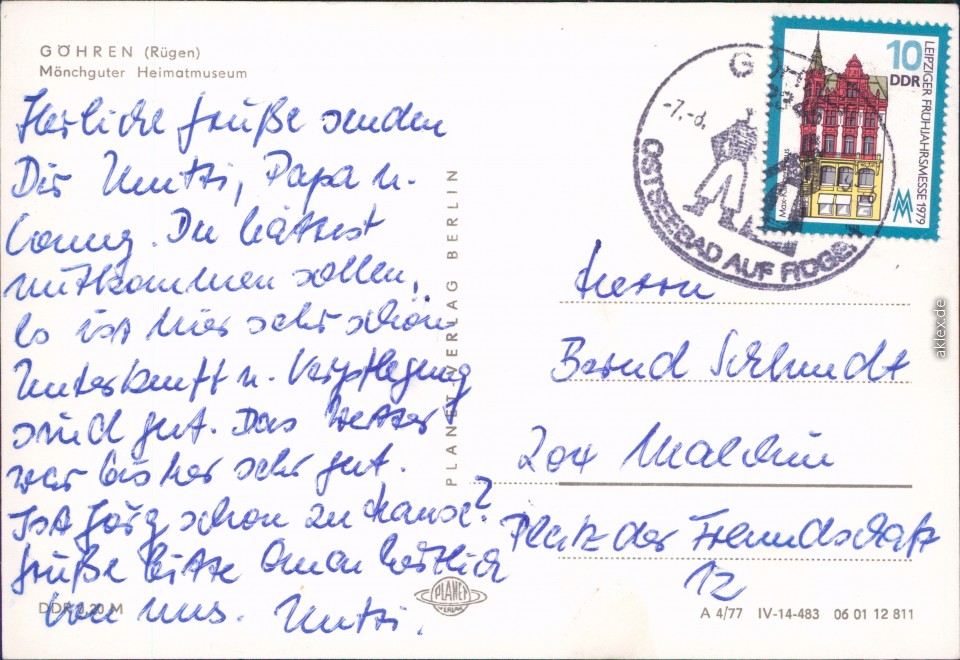 GÖHREN (Rügen)
Mönchguter Heimatmuseum
Herzliche Grüße senden
Dir Mutti, Papa u.
Conny. Du hättest
mitkommen sollen,
Es ist hier sehr schön
Unterkunft u. Verpflegung
sind gut. Das Wetter
war bisher sehr gut.
Ist Jörg schon zu hause?
Grüße bitte Oma herzlich
von uns. Mutti.
DDR 0,20 M
PLANET-VERLAG BERLIN
PLANET
VERLAG
-7.-8.
OSTSEEBAD AUF RÜGEN
10
DDR
LEIPZIGER FRÜHJAHRSMESSE 1979
MM
Herrn
Bernd Schmidt
204 Malchin
Platz der Freundschaft
12
A 4/77 IV-14-483 06 01 12 811
aklex.de